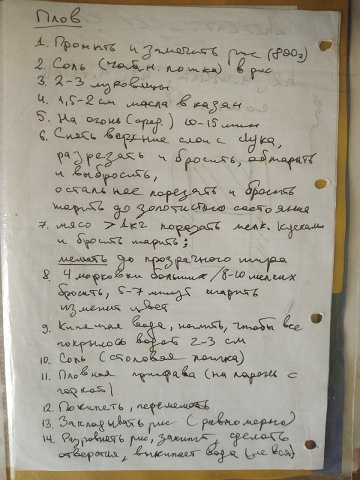 Плов
1. Промыть и замочить рис (800г)
2. Соль (чайн. ложка) в рис
3. 2-3 луковицы
4. 1,5-2см масла в казан
5. На огонь (сред.) 10-15 мин
6. Снять верхние слои с лука,
разрезать и бросить, обжарить
и выбросить,
остальное порезать и бросить
жарить до золотистого состояния
7. мясо > 1кг порезать мелк. кусками
и бросить жарить;
мешать до прозрачного жира
8. 4 моркови больших / 8-10 мелких
бросить, 5-7 минут жарить
изменит цвет
9. Кипятная вода, налить, чтобы все
покрылось водой 2-3 см
10. Соль (столовая ложка)
11. Пловная приправа (на ладонь с
горкой)
12. Покипеть, перемешать
13. Закладывать рис (равномерно)
14. Разровнять рис, закипит, сделать
отверстия, выкипает вода (не вся)